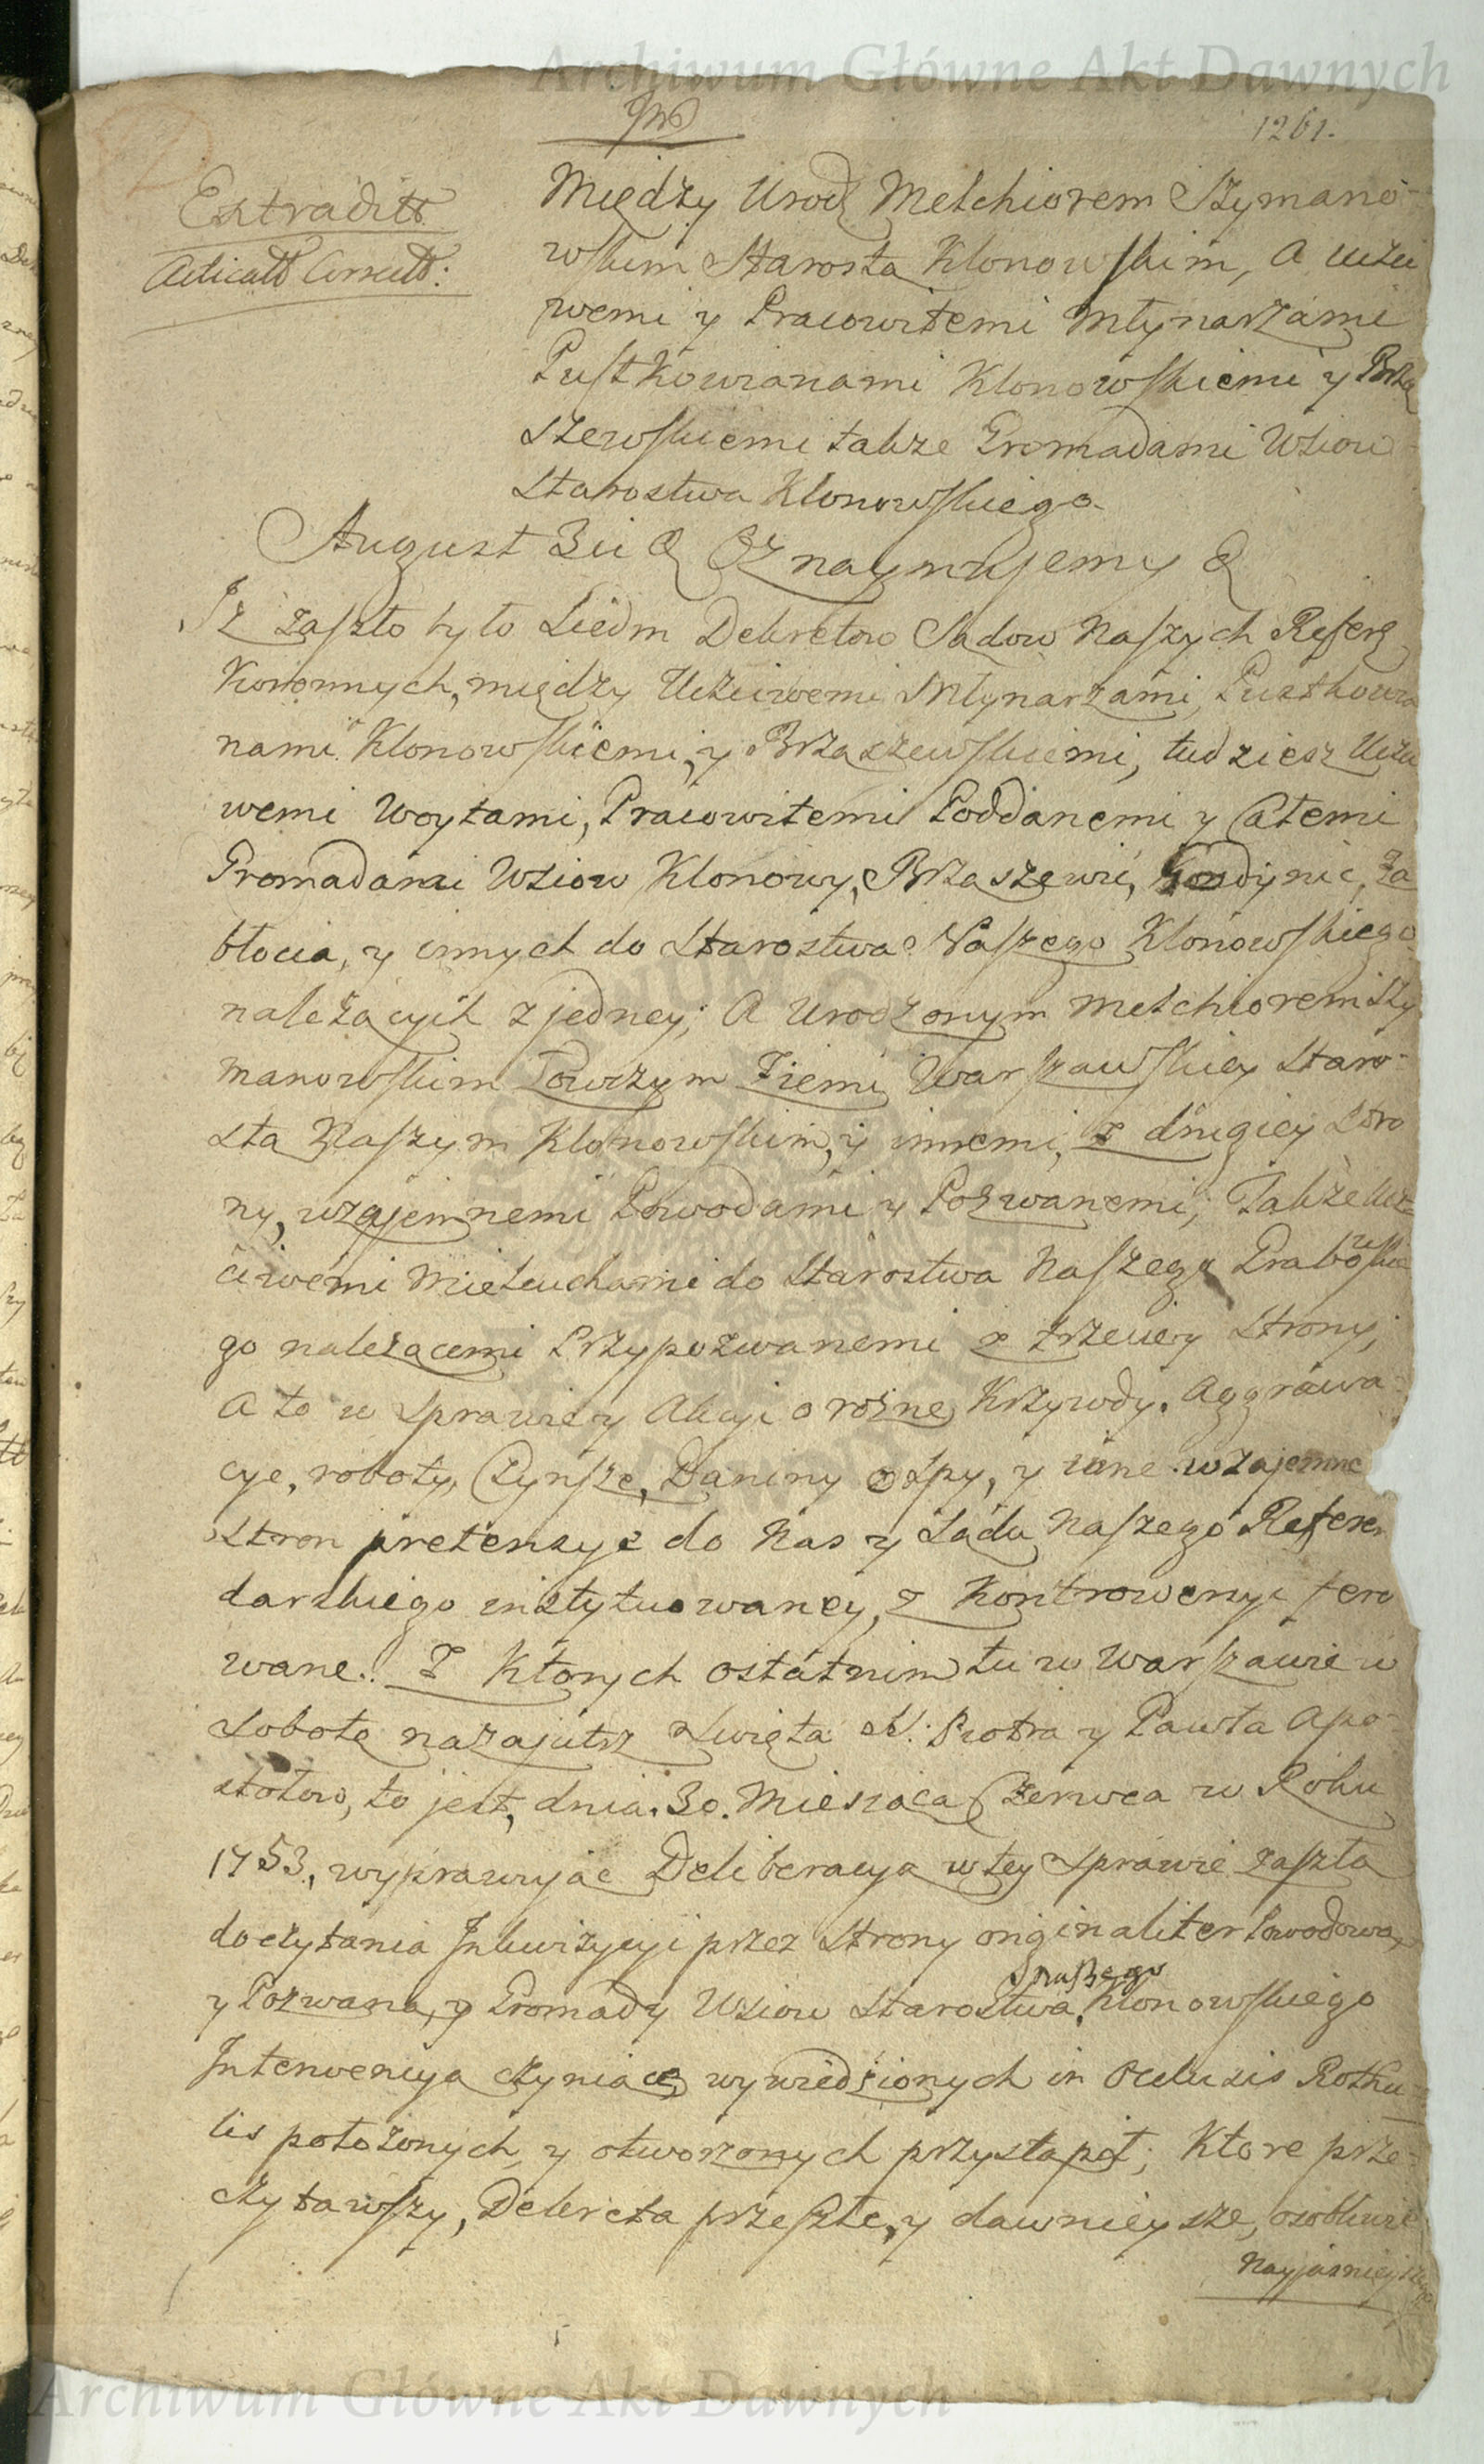 Archiwum Główne Akt Dawnych
1261.
Extradit
Między Urodz Melchiorem Szymano-
wskim Starostą Klonowskim, A Uczci
wemi y Pracowitemi Młynarzami
Pustkowianami Klonowskiemi y Brzą
szewskiemi także Gromadami Wsiow
Starostwa Klonowskiego.
August 3ci & Oznaymujemy &
Iż zaszło było Siedm Dekretow Sądow Naszych Refere
Koronnych, między Uczciwemi Młynarzami, Pustkowia
nami Klonowskiemi, y Brząszewskiemi, tudziesz Uczci
wemi Woytami, Pracowitemi Poddanemi y Całemi
Gromadami Wsiow Klonowy, Brząszewic, Gondynic, Za
błocia, y innych do Starostwa Naszego Klonowskiego
należących z jedney; A Urodzonym Melchiorem Szy
manowskim Łowczym Ziemi Warszawskiey Staro-
stą Naszym Klonowskim, y innemi, z drugiey Stro
ny, wzajemnemi Powodami y Pozwanemi; Także Ucz-
ciwemi Mieleuchami do Starostwa Naszego Grabowskie
go należącemi Przypozwanemi z trzeciey Strony;
A to w Sprawie y Akcyi o rożne Krzywdy, Aggrawa-
cye, roboty, Czynsze, Daniny Ospy, y inne wzajemne
Stron pretensye do Nas y Sądu Naszego Referen
darskiego instytuowaney, z Kontrowersyi fero
wane. Z Ktorych ostatnim tu w Warszawie w
Sobotę nazajutrz Święta SS. Piotra y Pawła Apo-
stołow, to jest, dnia 30. Miesiąca Czerwca w Roku
1753, wyprawując Deliberacya w tey Sprawie zaszła
do czytania Inkwizycyi przez Strony originaliter Powodową
y Pozwaną, y Gromady Wsiow Starostwa Naszego Klonowskiego
Interwencyą czyniące wywiedzionych in Oclusis Rothu-
lis położonych, y otworzonych przystąpił; Ktore prze-
czytawszy, Dekreta przeszłe, y dawnieysze, osobliwie
Nayjasniejszego
Archiwum Główne Akt Dawnych